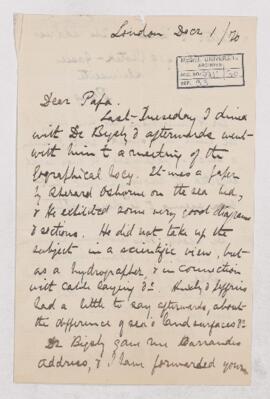 London Decr 1/70
McGILL UNIVERSITY
ARCHIVES
ACC. NO.
REF.
Dear Papa.
Last Tuesday I dined
with Dr Bigsby & afterwards went
with him to a meeting of the
Geographical Socy. It was a paper
by Sherard Osborne on the sea bed,
& He exhibited some very good diagrams
& sections. He did not take up the
subject in a scientific view, but
as a hydrographer, & in connection
with cable laying &c. Huxley & Jeffries
had a little to say afterwards, about
the difference of sea & land surfaces &c
Dr Bigsby gave me Barrandes
address, & I have forwarded yours